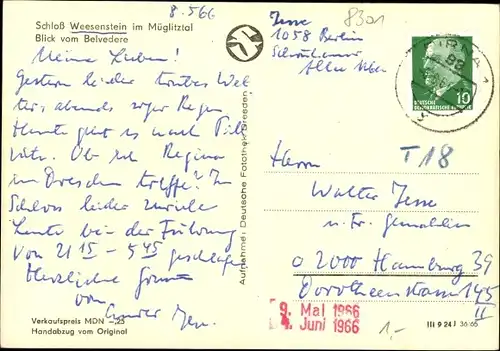 8.5.66
Schloß Weesenstein im Müglitztal
Blick vom Belvedere
Meine Lieben!
Gestern leider trübes Wet-
ter, abends sogar Regen
Heute geht es nach Pill-
nitz. Ob ich Regina
in Dresden treffe? Im
Schloss leider zuviele
Leute bei der Führung
von 21 15 - 5 45 geschlafen
Herzliche Grüsse
von
Verkaufspreis MDN -,25
Handabzug vom Original
Aufnahme: Deutsche Fotothek Dresden
Jesse
1058 Berlin
Schönhauser
Allee
8301
PIRNA 1
10
DEUTSCHE
DEMOKRATISCHE REPUBLIK
T 18
Herrn
Walter Jesse
u. Fr. Gemahlin
2000 Hamburg 39
Dorotheenstrasse 145
II
9. Mai 1966
4. Juni 1966
1,-
III 9 24 J 36/65